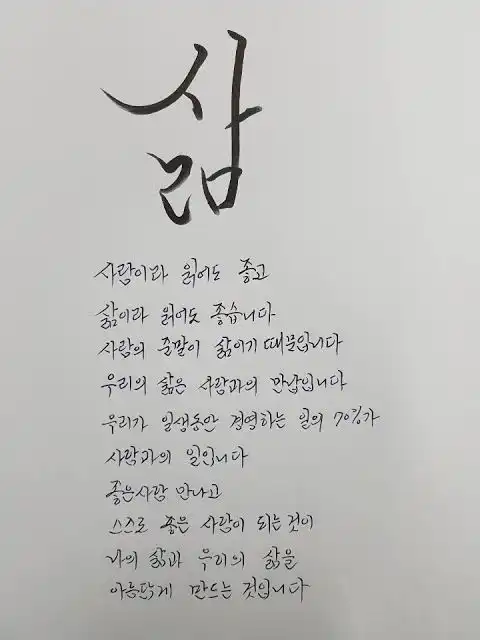 삶
사람이라 읽어도 좋고
삶이라 읽어도 좋습니다
사람의 준말이 삶이기 때문입니다
우리의 삶은 사람과의 만남입니다
우리가 일생동안 경영하는 일의 70%가
사람과의 일입니다
좋은사람 만나고
스스로 좋은 사람이 되는것이
나의 삶과 우리의 삶을
아름답게 만드는 것입니다